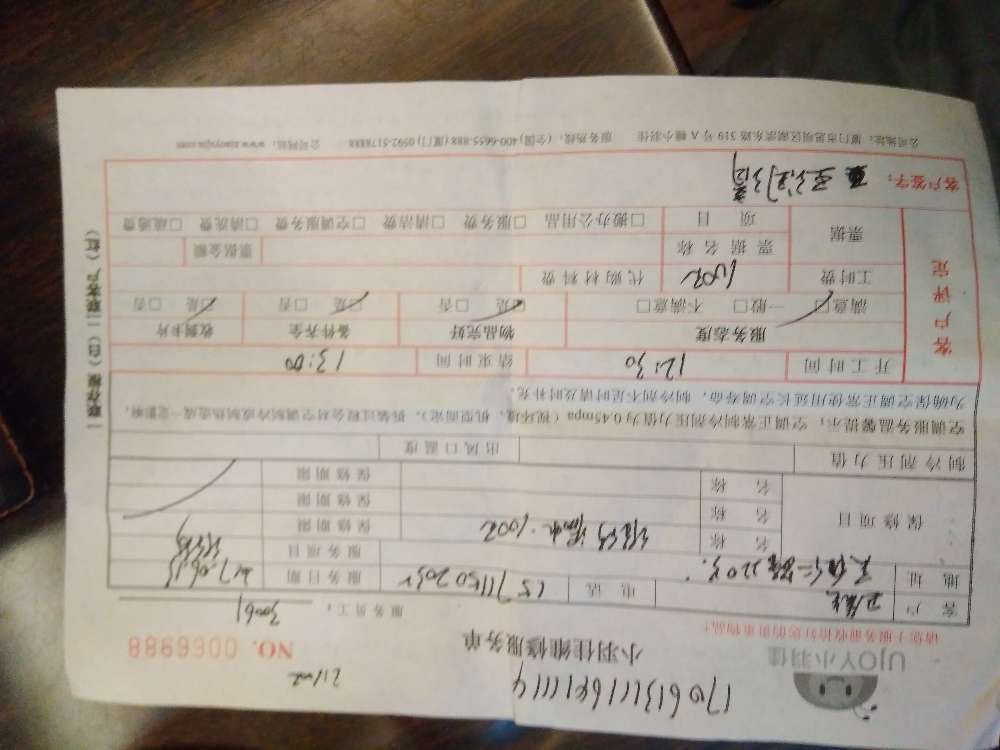 170613111681114
UJOY小羽佳
小羽佳维修服务单
NO. 0066988
请您上服务前收拾好您的贵重物品!
服务员工: 30061
客户 电话 服务日期
地址 服务项目
保修项目 名称 保修期限
名称 保修期限
名称 保修期限
制冷剂压力值 出风口温度
空调服务温馨提示:空调正常制冷剂压力值为0.45mpa(视环境、机型而定),拆装过程会对空调制冷或制热造成一定影响,
为确保空调正常使用延长空调寿命,制冷剂不足时请及时补充。
客户评定
开工时间 12:30 结束时间 13:00
服务态度 物品完好 备件齐全 收到卡片
满意□ 一般□ 不满意□ 是□ 否□ 是□ 否□ 是□ 否□
工时费 100元 代购材料费
票据 票据名称 票据金额
项目 □搬办公用品 □服务费 □清洁费 □空调服务费 □清洗费 □疏通费
客户签字:
公司地址:厦门市思明区湖滨东路319号A幢小羽佳 服务热线:(全国)400-6655-888 (厦门)0592-5178888 公司网站:www.xiaoyujia.com
一联存根(白)二联客户(红)